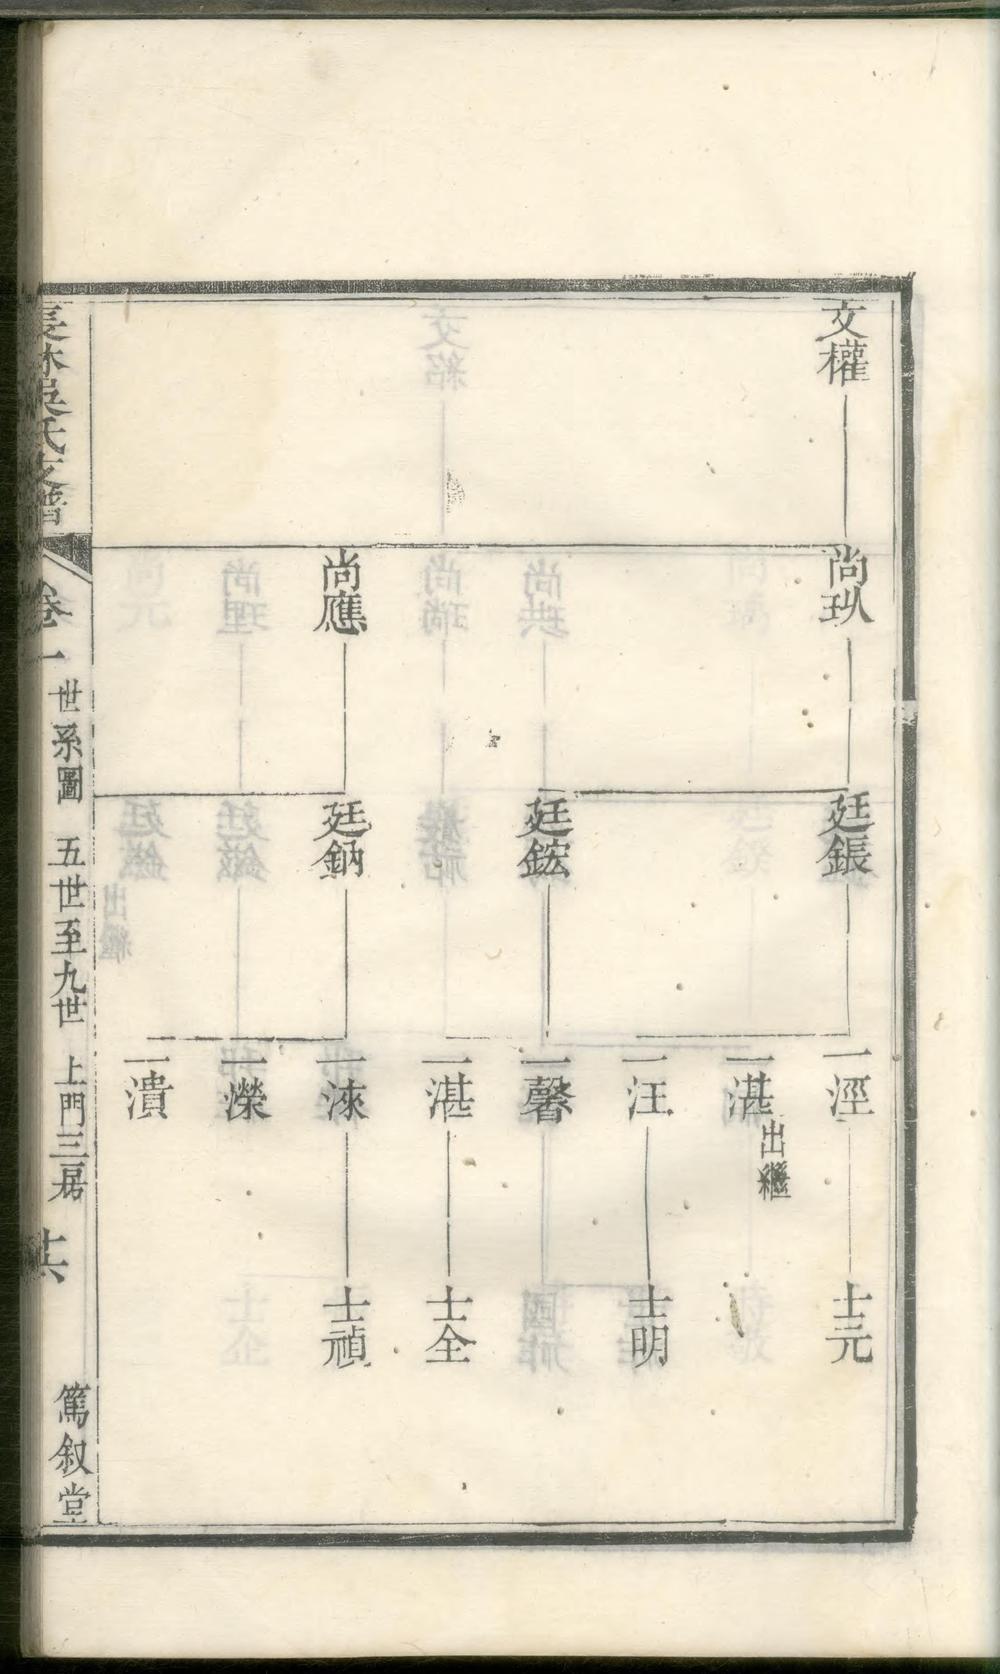 文權
尚㺨
廷鋹
一涇
士元
一湛
出繼
一汪
士明
廷鋐
一馨
一湛
士全
尚應
廷鈉
一淶
士禎
一濚
一潰
長林吳氏支譜
卷一
世系圖
五世至九世
上門三房
十六
篤叙堂